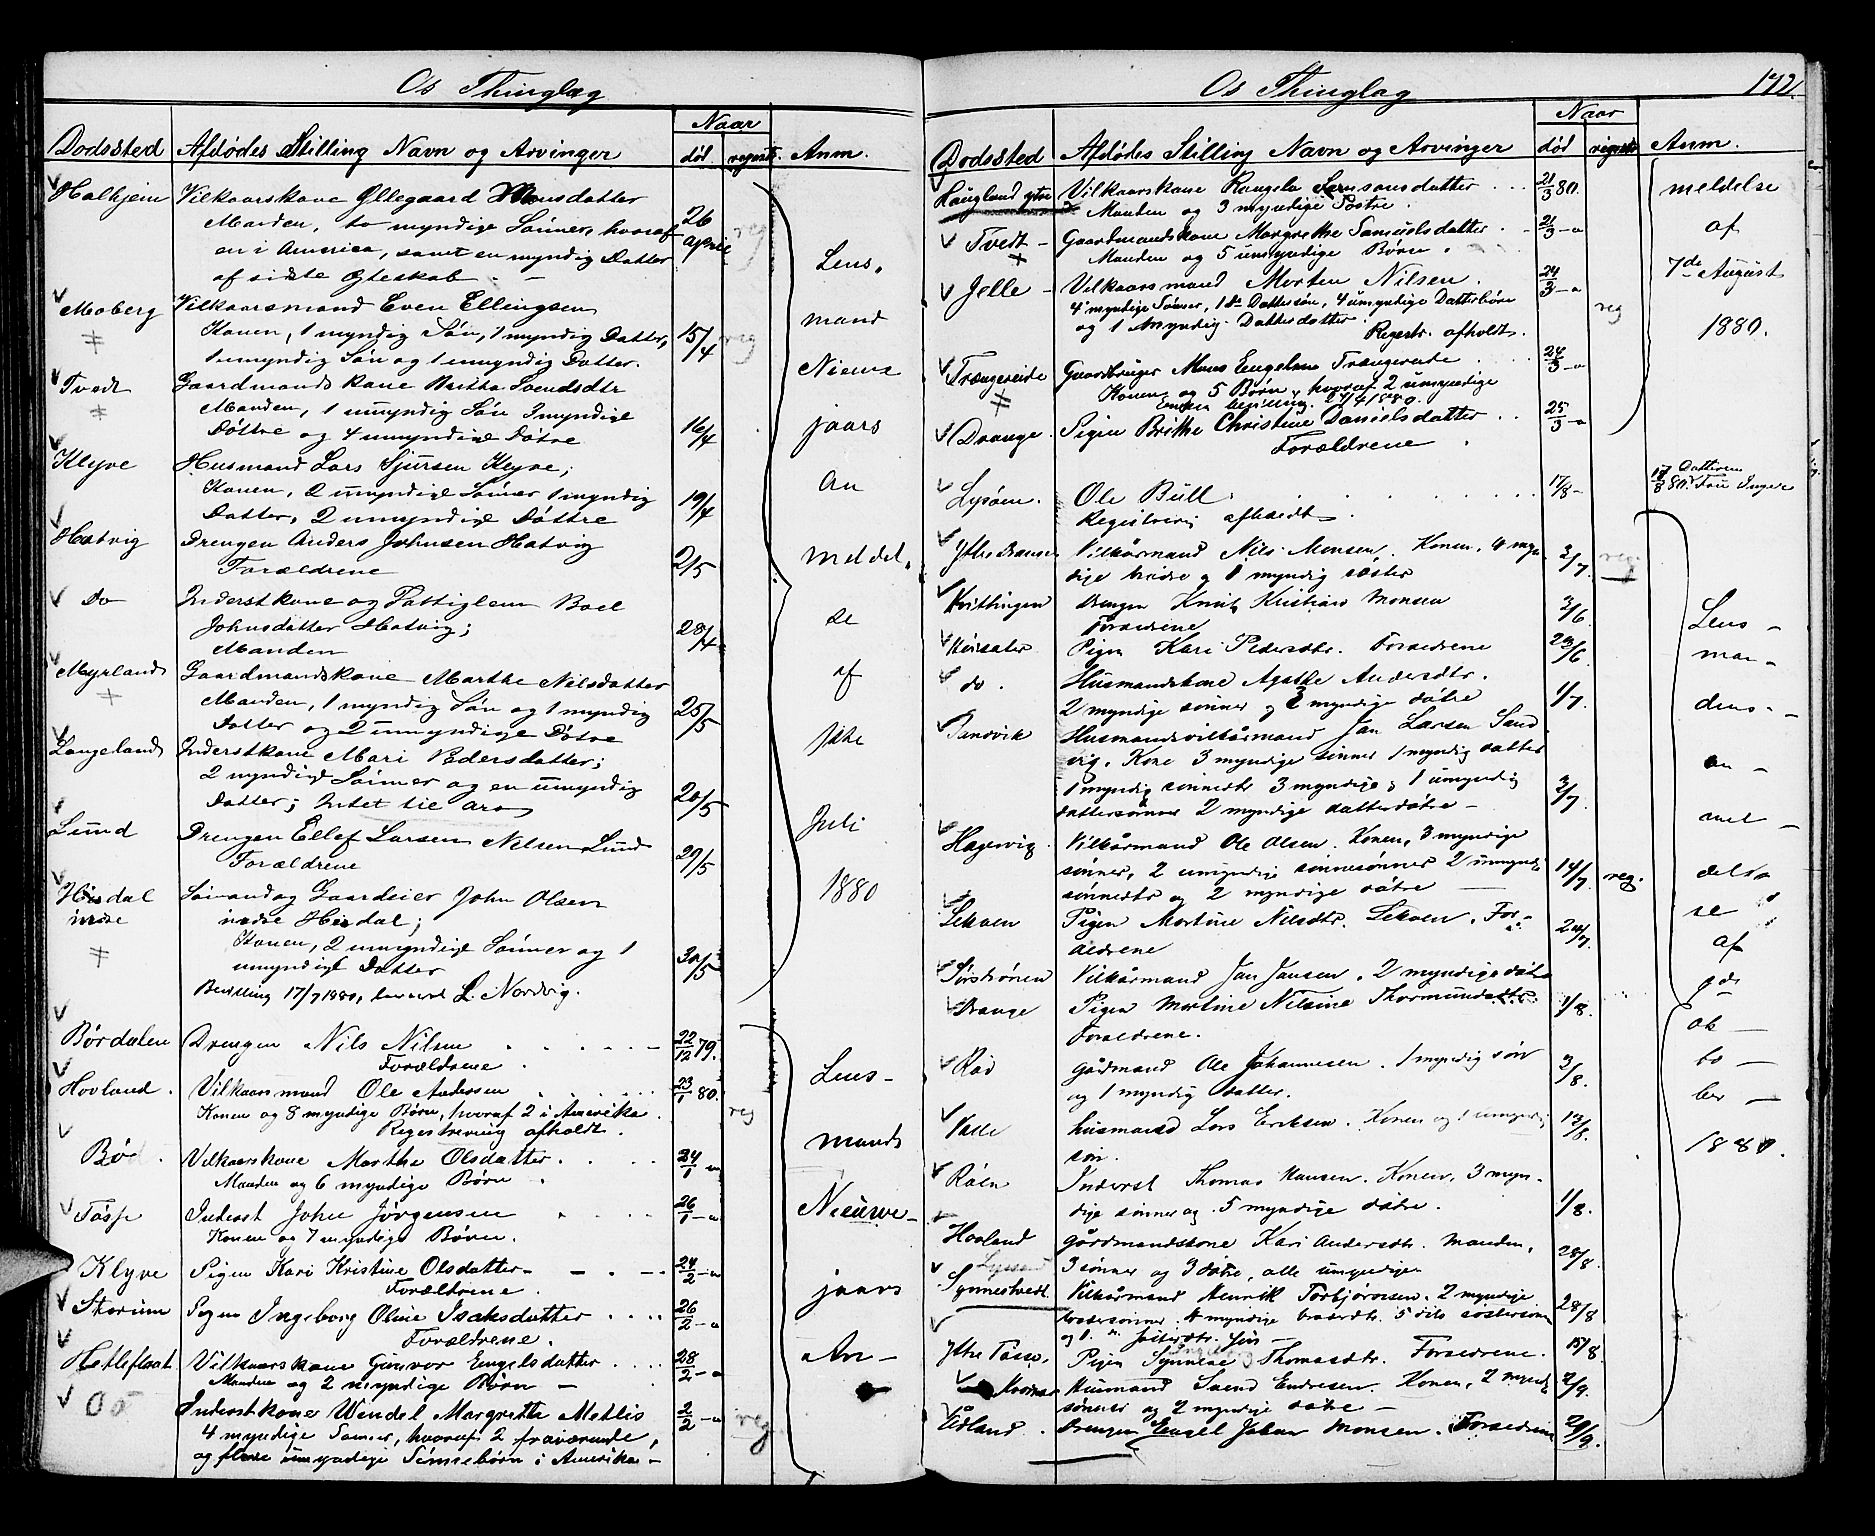 Os Thinglag
Naar
Dødssted Afdødes Stilling Navn og Arvinger død registr. Anm.
Halhjem Vilkaarskone Øllegaard Monsdatter
Manden, to myndige Sønner, hvoraf 26 April reg
en i America, samt en myndig Datter
af sidste Ægteskab
Moberg Vilkaarsmand Even Ellingsen
Konen, 1 myndig Søn, 1 myndig Datter, 15/4 reg
1 umyndig Søn og 1 umyndig Datter.
Tvedt Gaardmandskone Martha Svendsdtr
Manden, 1 umyndig Søn 3 myndige
Døttre og 4 umyndige Døtre 16/4
Klyve Husmand Lars Sjursen Klyve;
Konen, 2 umyndige Sønner 1 myndig 19/4
Datter, 2 umyndige Døttre
Hatvig Drengen Anders Johnsen Hatvig
Forældrene 2/5
Do Inderstkone og Fattiglem Boel
Johnsdatter Hatvig; 28/4
Manden
Myrland Gaardmandskone Marthe Nilsdatter
Manden, 1 myndig Søn og 1 myndig 25/5
Datter og 2 umyndige Døtre
Langeland Inderstkone Mari Pedersdatter;
2 myndige Sønner og en umyndig 20/5
Datter; Intet til arv
Lund Drengen Ellef Larsen Nilsen Lund
Forældrene 29/5
Hisdal Sømand og Gaardeier John Olsen
nedre nedre Hisdal;
Konen, 2 umyndige Sønner og 1 30/5
umyndige Datter
Bevilling 17/7 1880, L. Nordvig.
Børdalen Drengen Nils Nilsen 22/12 79.
Forældrene
Hovland. Vilkaarsmand Ole Andersen 23/1 80.
Konen og 8 myndige Børn, hvoraf 2 i Amerika. reg
Registrering afholdt.
Bød. Vilkaarskone Marthe Olsdatter. 24/1 –
Manden og 6 myndige Børn.
Tøsse Inderst John Jørgensen 26/1 –
Konen og 7 myndige Børn.
Klyve Pigen Kari Kristine Olsdatter 24/2 –
Forældrene.
Storum Pigen Ingeborg Oline Isaksdatter 26/2 –
Forældrene.
Hetleflaat Vilkaarskone Gunvor Engelsdatter 28/2 –
Manden og 2 myndige Børn –
Os Inderstkone Wendel Margrethe Metlis 2/2 – reg
4 myndige Sønner, hvoraf 2 fraværende,
og flere umyndige Sønnebørn i Amerika –
Lens-
mand
Nieuwe
jaars
An
meldel-
se
af
Juli
1880
Lens-
mands
Nieuwe-
jaars
An-
Os Thinglag 172.
Naar
Dødssted Afdødes Stilling Navn og Arvinger død registr Anm.
Haugland ytre Vilkaarskone Rangela Samsonsdatter 21/3 80.
Manden og 3 myndige Søstre.
Tvedt – Gaardmandskone Margrethe Samuelsdatter 21/3 –
Manden og 5 umyndige Børn.
Jelle – Vilkaarsmand Morten Nilsen. 24/3 –
4 myndige Sønner, 1 do Dattersøn, 4 umyndige Datterbørn reg
og 1 myndig Datterdatter.
Registr. afholdt.
Trængereide Gaardbruger Mons Engelsen Trængereide 24/3 –
Konen og 5 Børn, hvoraf 2 umyndige
1880.
Drange. Pigen Brithe Christine Danielsdatter 25/3 –
Forældrene
Lysøen. Ole Bull 17/8 –
Registrering afholdt.
Ytre Vilkårmand Nils Monsen. Konen, 4 myn- 2/7. reg.
dige brødre og 1 myndig søster
Hvittingen Drengen Knut Kristian Monsen 3/6
Foræderne
Pigen Kari Pedersdtr. Forældrene 29/6
do. Husmandskone Agathe Andersdtr.
2 myndige sønner og 2 myndige døtre 1/7.
Sandvik Husmandsvilkårmand Jan Larsen Sand
vig. Kone 3 myndige sønner 1 myndig datter
1 myndig sønnedtr 3 myndige, 1 umyndig 3/7.
dattersønner 2 myndige datterdøtre –
Hagevig Vilkårmand Ole Olsen. Konen, 3 myndige
sønner, 2 umyndig sønnesønner 2 umyndi 14/7 reg.
sønnedtr og 2 myndige døtre
Lekven Pigen Martine Nilsdtr. Lekven. For- 24/7.
ældrene
Sørstrønen Vilkårmand Jan Jansen. 2 myndige døtre
Drange Pigen Martine Nilsine Thormundsdtr. 1/8.
Forældrene.
Rød gårdmand Ole Johannesen. 1 myndig søn 3/8.
og 1 myndig datter.
Valle husmand Lars Eriksen. Konen og 1 umyndig 13/8.
søn.
Røen Inderst Thomas Hansen. Konen, 3 myn-
dige sønner og 5 myndige døtre. 1/8.
Hovland gårdmandskone Kari Andersdtr. Manden,
3 sønner og 3 døtre, alle umyndige 28/8.
Synnestvedt Vilkårmand Henrik Torbjørnsen. 2 myndige
brodersønner, 4 myndige broderdtr. 5 dito søstersøn 28/8
Ytre Tøsse. Pigen Synneve Thomasdtr. Forældrene. 15/8.
Husmand Svend Endresen. Konen, 2 myndi 2/9.
sønner og 2 myndige døtre –
Lidland. Drengen Engel Johan Monsen. Forældrene 29/9.
meldelse
af
7de August
1880.
17/8 80.
Lens –
man –
dens –
an –
mel –
delse
se
af
ok –
to –
ber –
1880.